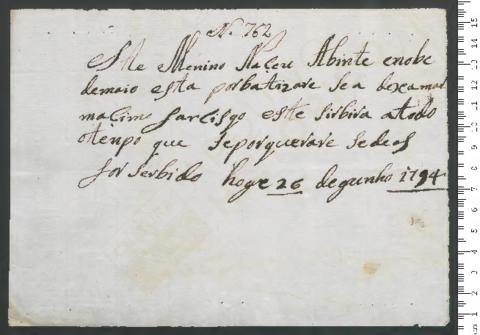 Nº 762
Este Menino Naceu Abinte enobe
demaio esta porbatizare se a dexamar
macimo farcisgo este sirbira atodo
otenpo que seporquerare sedeos
for serbido hoge 26 degunho 1794